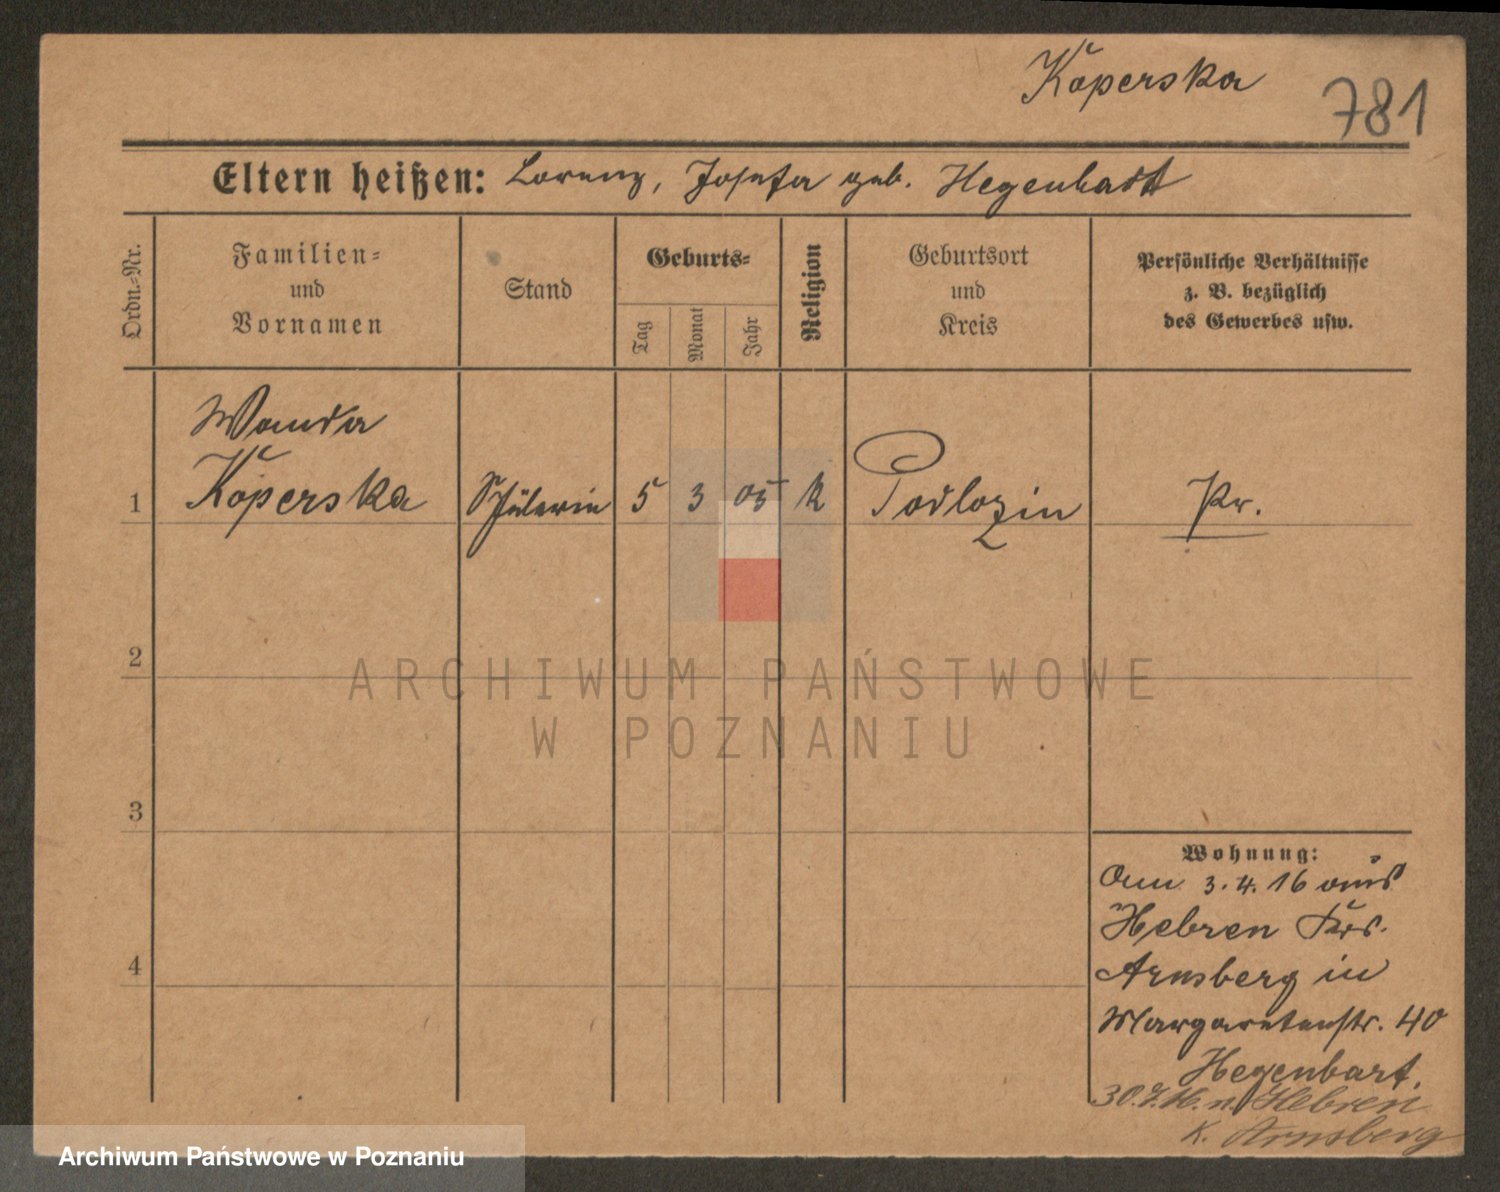 Koperska
781
Eltern heißen: Lorenz, Josefa geb. Hegenbart
Ordn.-Nr.
Familien-
und
Vornamen
Stand
Geburts-
Tag
Monat
Jahr
Religion
Geburtsort
und
Kreis
Persönliche Verhältnisse
z. B. bezüglich
des Gewerbes usw.
Wanda
1 Koperska Schülerin 5 3 05 k Podlozin Pr.
2
ARCHIWUM PAŃSTWOWE
W POZNANIU
3
Wohnung:
Am 3.4.16 aus
Hebren Krs.
4 Arnsberg in
Margaretenstr. 40
Hegenbart.
30.7.16. n. Hebren
K. Arnsberg
Archiwum Państwowe w Poznaniu